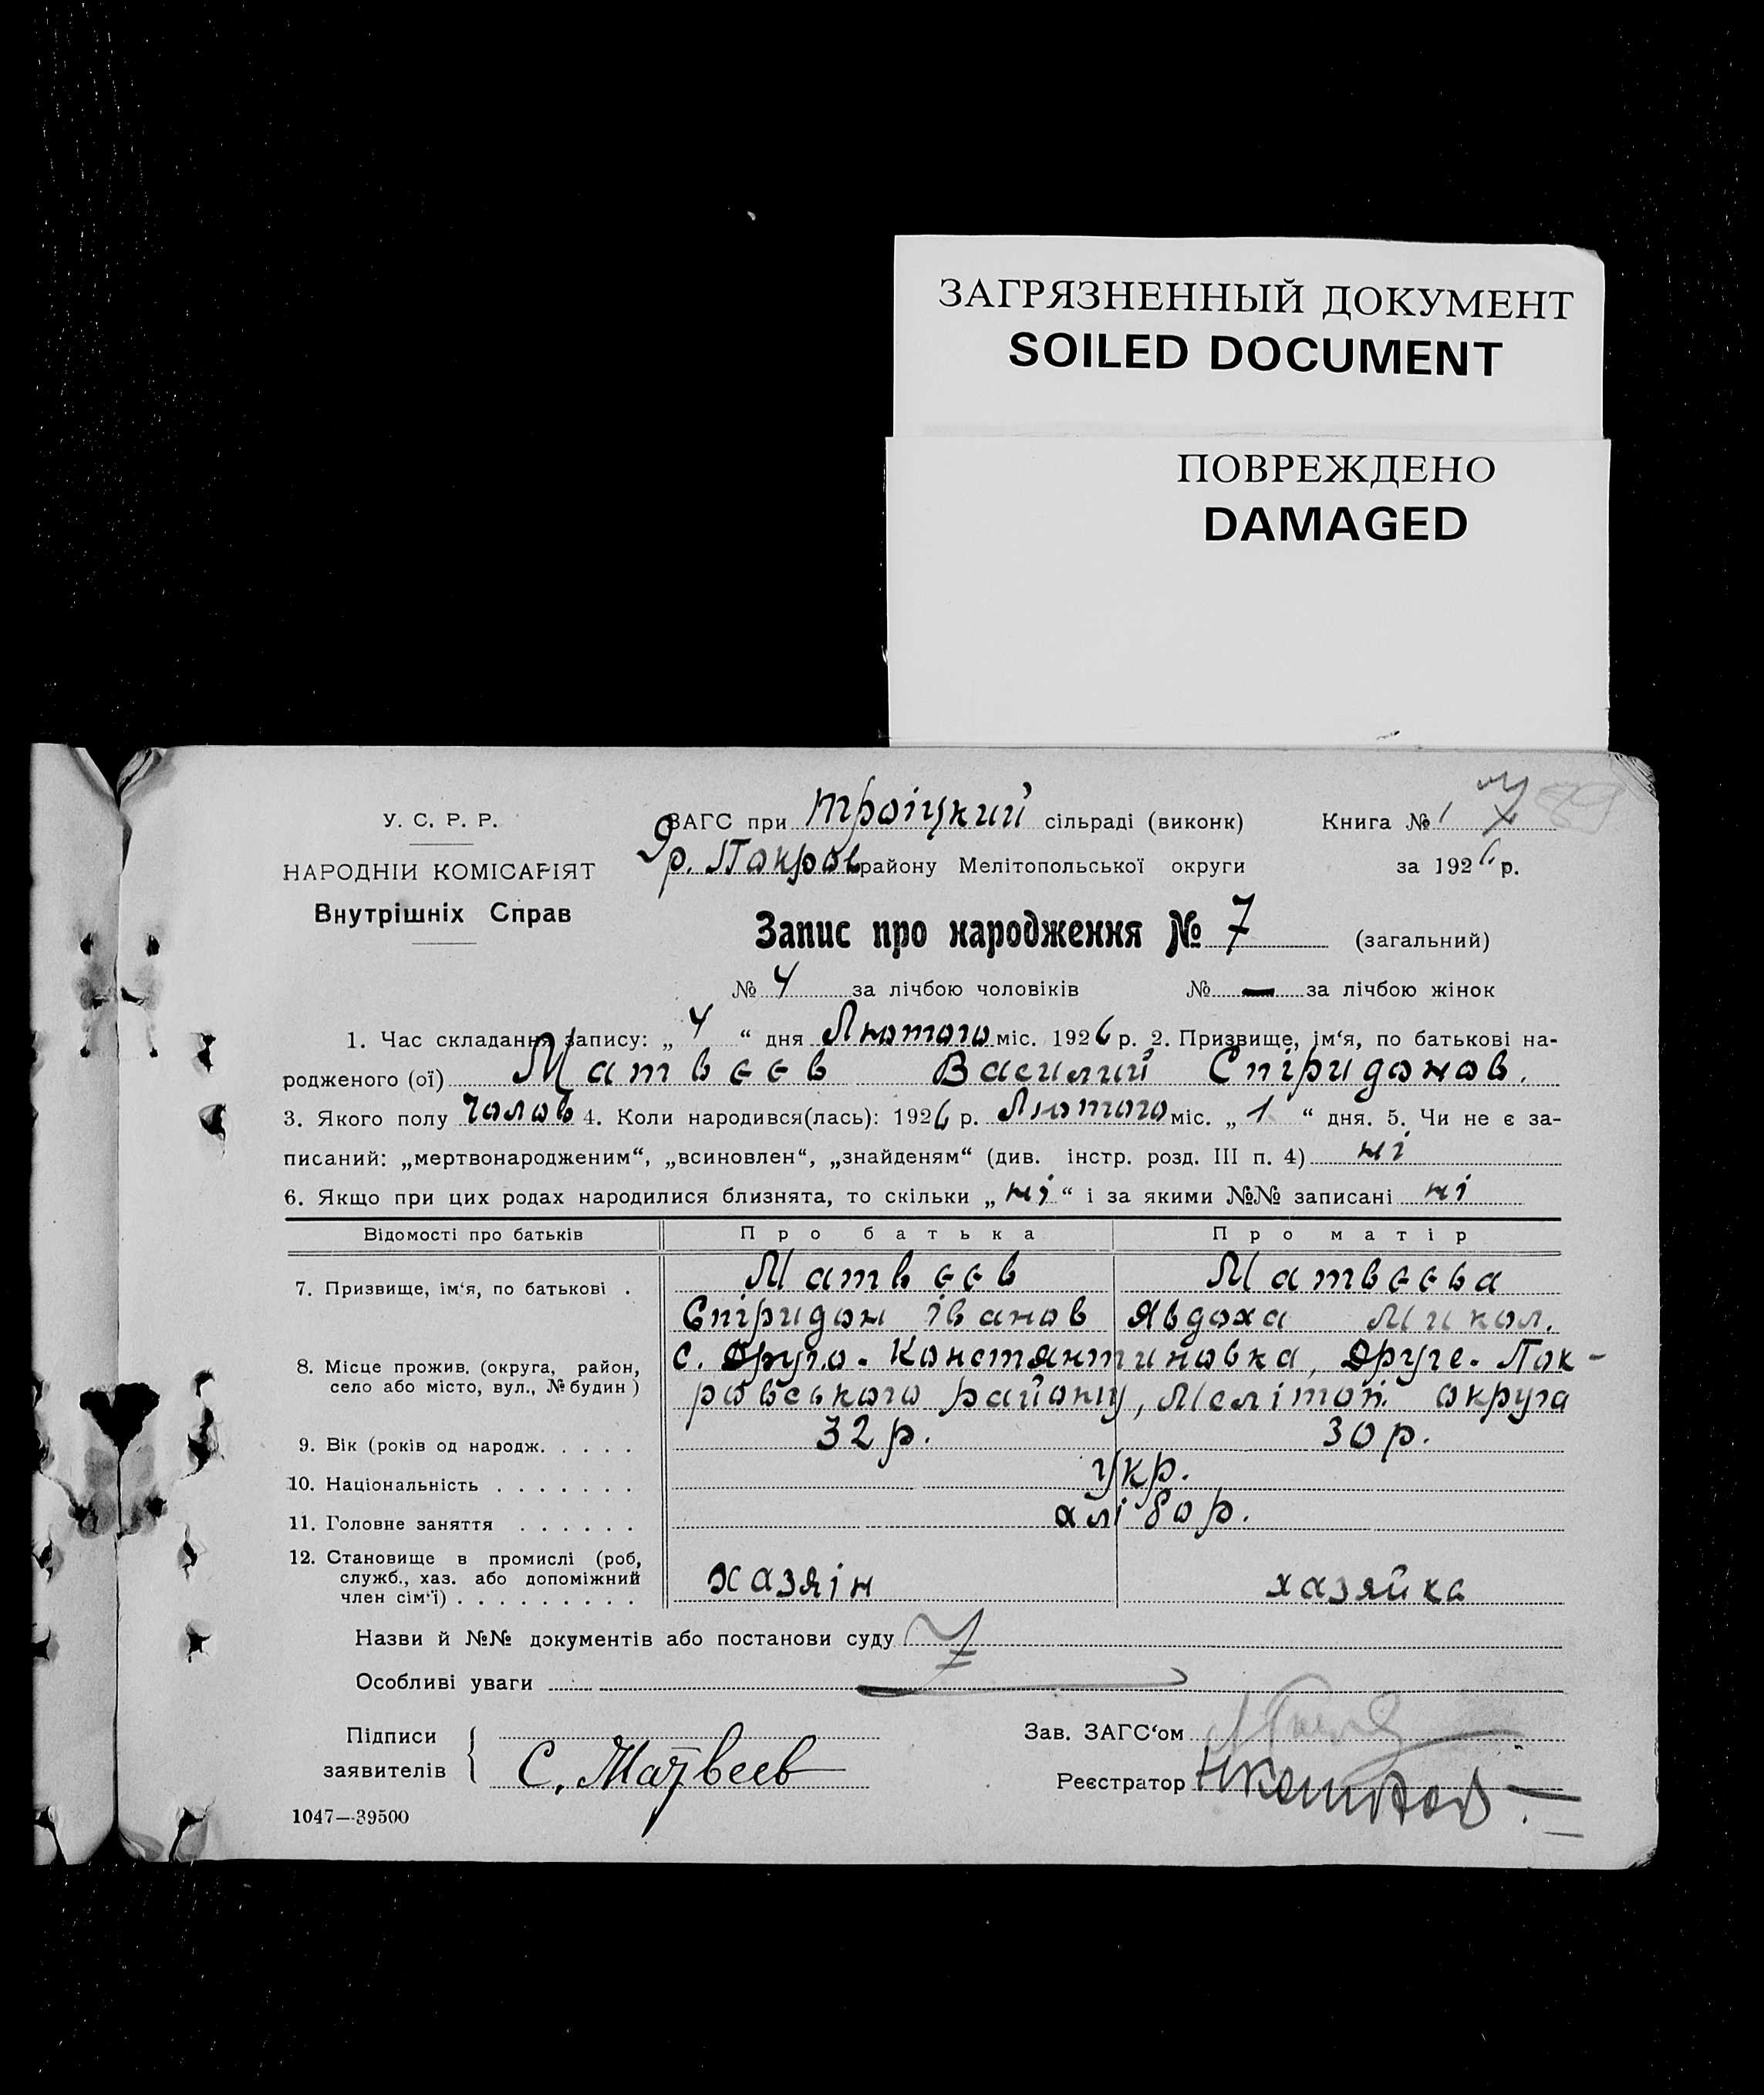 ЗАГРЯЗНЕННЫЙ ДОКУМЕНТ
SOILED DOCUMENT
ПОВРЕЖДЕНО
DAMAGED
89
У. С. Р. Р.
НАРОДНІЙ КОМІСАРІЯТ
Внутрішніх Справ
ЗАГС при Троіцкий сільраді (виконк) Книга № 1
Др. Покров району Мелітопольської округи за 1926 р.
Запис про народження № 7 (загальний)
№ 4 за лічбою чоловіків № — за лічбою жінок
1. Час складання запису: „ 4 “ дня Лютого міс. 1926 р. 2. Призвище, ім'я, по батькові на-
родженого (ої) Матвєєв Василий Спіридонов.
3. Якого полу Чолов 4. Коли народився(лась): 1926 р. Лютого міс. „ 1 “ дня. 5. Чи не є за-
писаний: „мертвонародженим“, „всиновлен“, „знайденям“ (див. інстр. розд. III п. 4) ні
6. Якщо при цих родах народилися близнята, то скільки „ ні “ і за якими №№ записані ні
Відомості про батьків Про батька Про матір
7. Призвище, ім'я, по батькові . Матвєєв Матвєєва
Спіридон Іванов Явдоха Микол.
8. Місце прожив. (округа, район, село або місто, вул., № будин ) с. Друго-Константиновка, Друге-Пок-
ровського району, Меліток. округа
9. Вік (років од народж. . . . . 32 р. 30 р.
10. Національність . . . . . . . укр.
11. Головне заняття . . . . . . хлібор.
12. Становище в промислі (роб,
служб., хаз. або допоміжний
член сім'ї) . . . . . . . . . хазяін хазяйка
Назви й №№ документів або постанови суду
Особливі уваги
Підписи
заявителів
С. Матвеев
Зав. ЗАГС'ом
Реєстратор
1047—39500